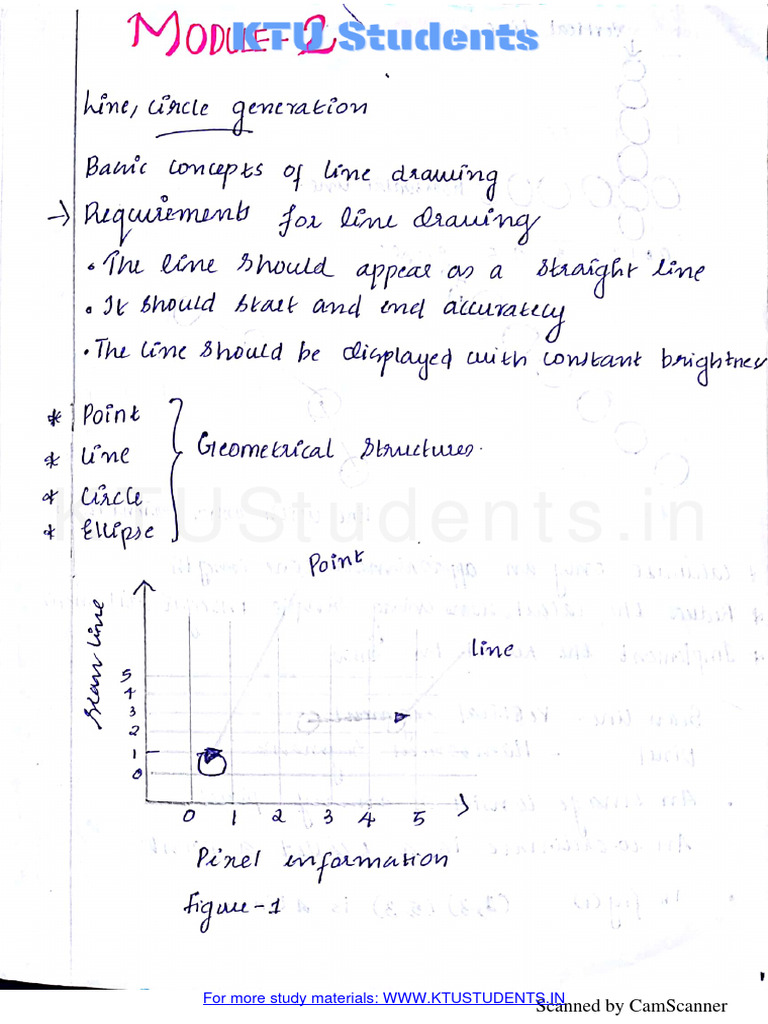 MODULE-2
KTU Students
Line, Circle generation
Basic concepts of line drawing
→ Requirements for line drawing
• The line should appear as a straight line
• It should start and end accurately
• The line should be displayed with constant brightness
* Point
* Line
* Circle
* Ellipse
Geometrical Structures.
KTUStudents.in
Point
line
Scan line
5
4
3
2
1
0
0 1 2 3 4 5
Pixel information
figure-1
For more study materials: WWW.KTUSTUDENTS.IN
Scanned by CamScanner